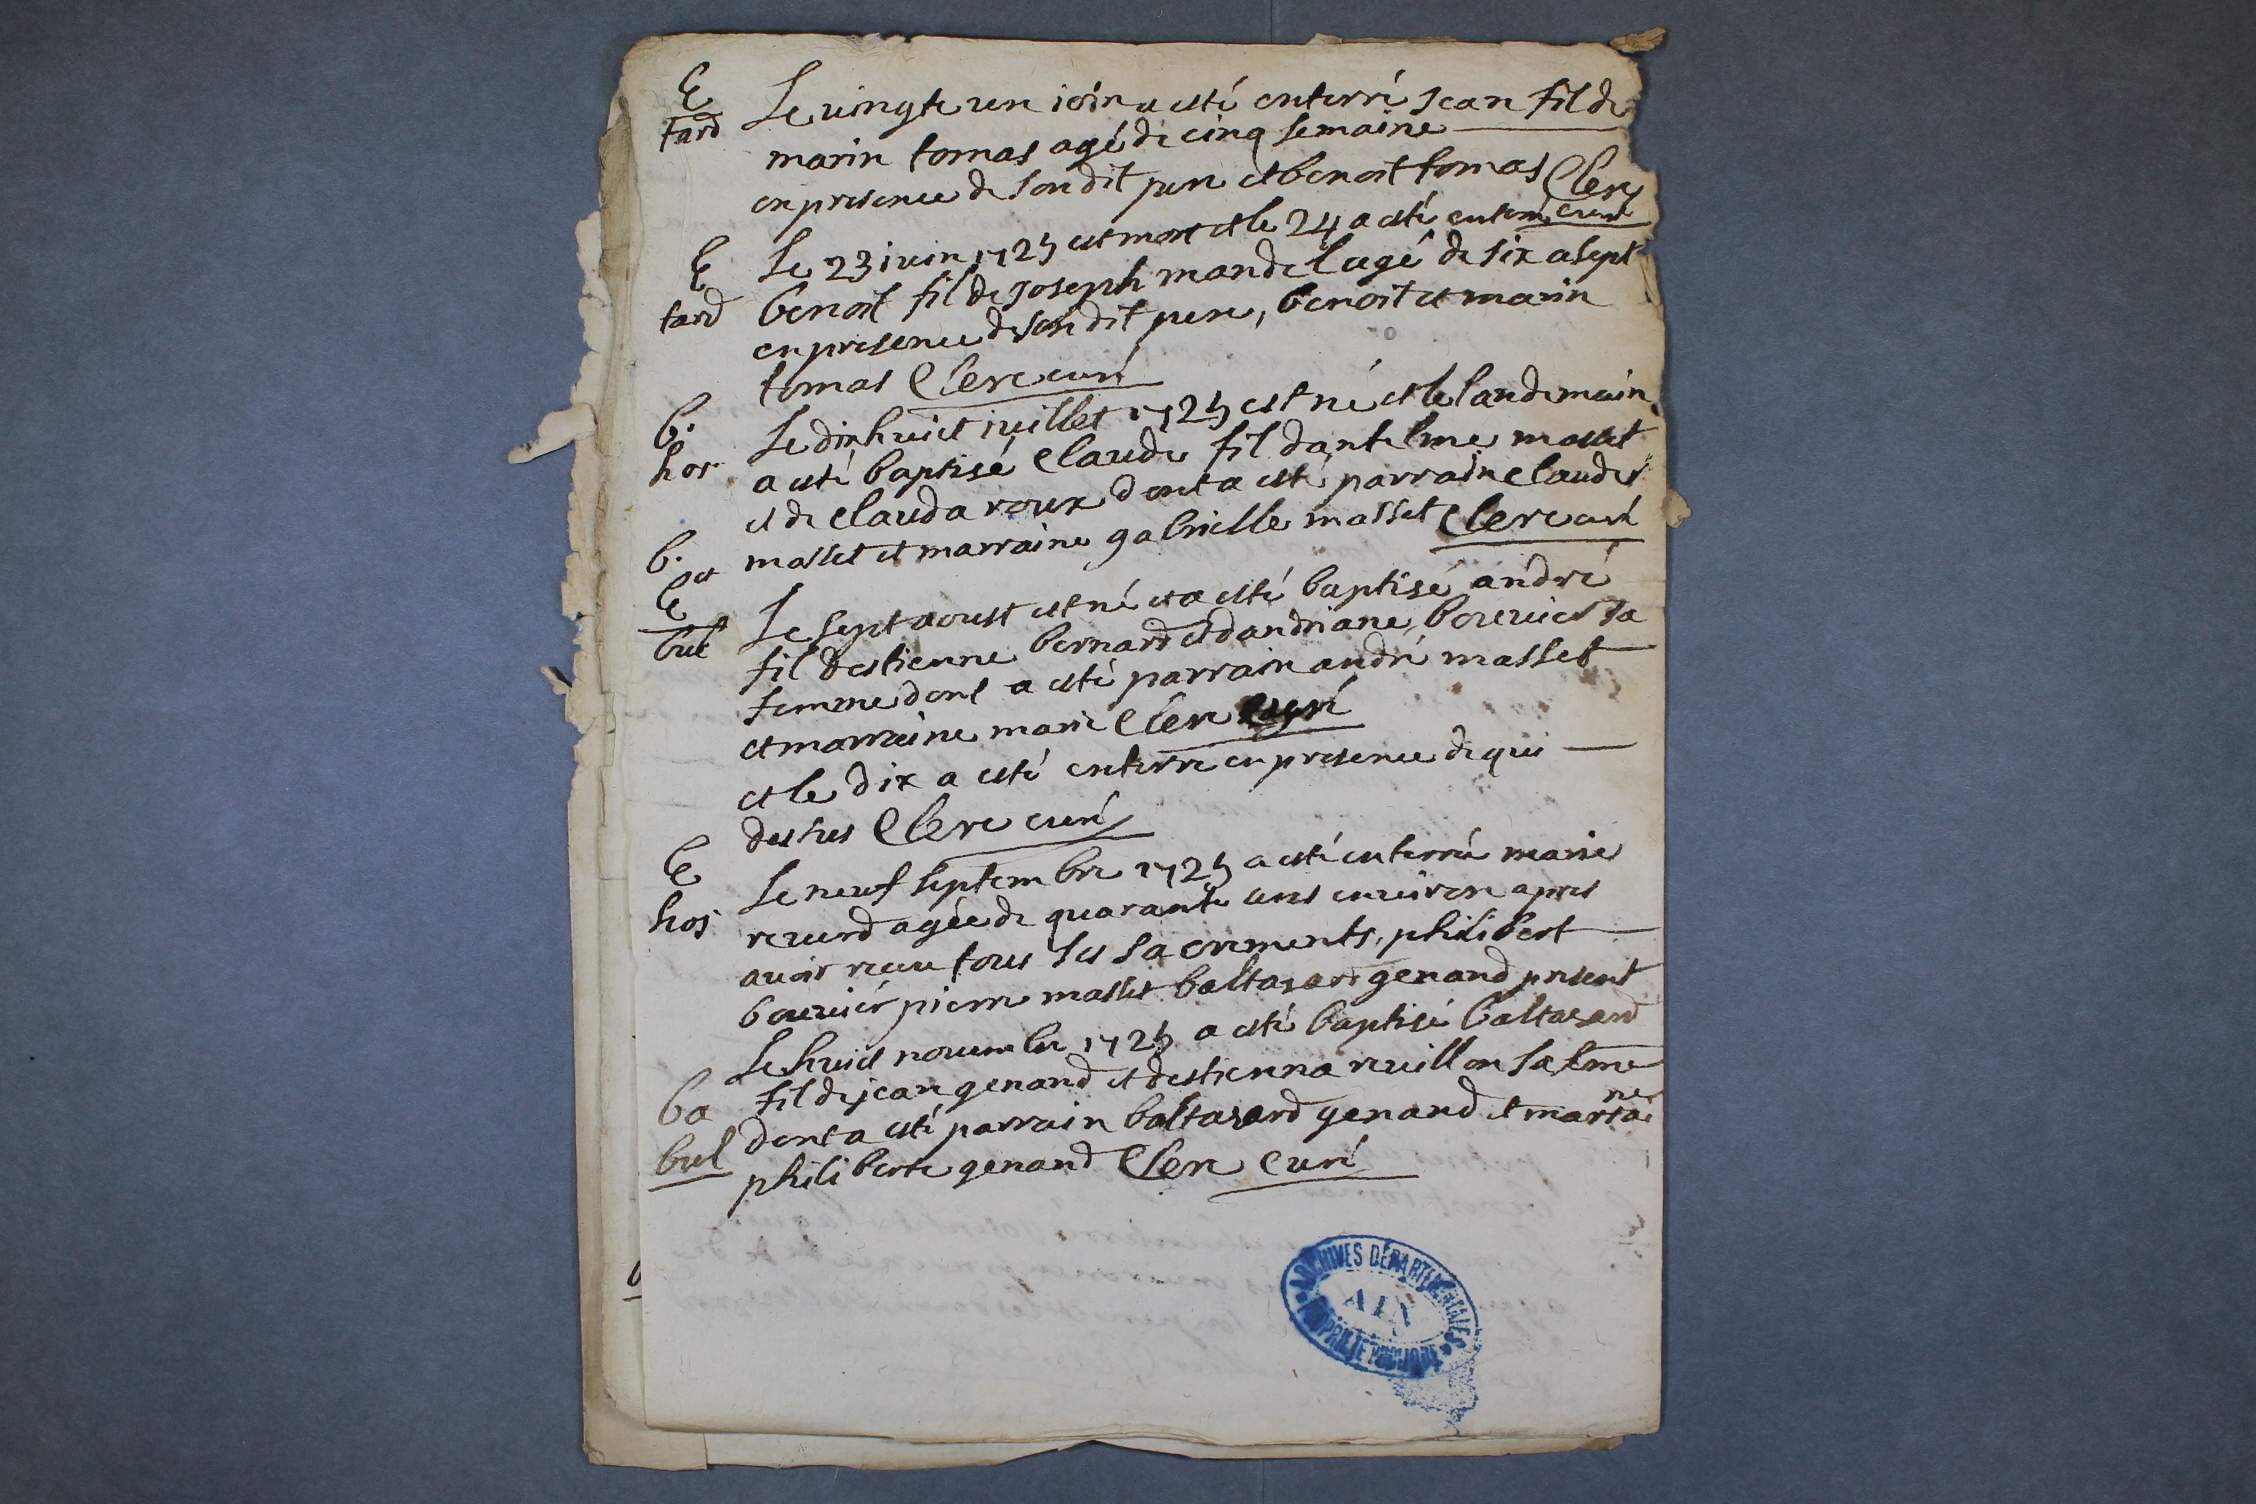 E
tard
Le vingte un ioin a esté enterré Jean fil de
marin tomas agé de cinq semaine
en presence de son dit pere et benoit tomas Clerc
curé
E
tard
Le 23 iuin 1725 est mort et le 24 a esté enterré
benoit fil de Joseph mandel agé de six a sept
en presence de son dit pere, benoit et marin
tomas Clerc curé
b.
hos
Le dixhuict iuillet 1725 est né et le landemain
a esté baptisé Claude fil dantelme masset
et de Clauda roux dont a esté parrain Claude
masset et marraine gabrielle masset Clerc curé
b.
et
E
bul
Le sept aoust est né et a esté baptisé andré
fil destienne bernard et dandriane bouvier sa
femme dont a esté parrain andré masset
et marraine marie Clerc curé
et le dix a esté enterre en presence de qui
dessus Clerc curé
E
hos
Le neuf septembre 1725 a esté enterrée marie
revend agée de quarante ans environ apres
avoir receu tous ses sacrements, philibert
bouvier pierre masset baltasard genand present
ba
bul
Le huict novembre 1725 a esté baptisé baltasard
fil de jean genand et destienna revillon sa fme
dont a esté parrain baltasard genand et marraine
philiberte genand Clerc Curé
ARCHIVES DÉPARTEMENTALES
AIN
PROPRIÉTÉ PUBLIQUE